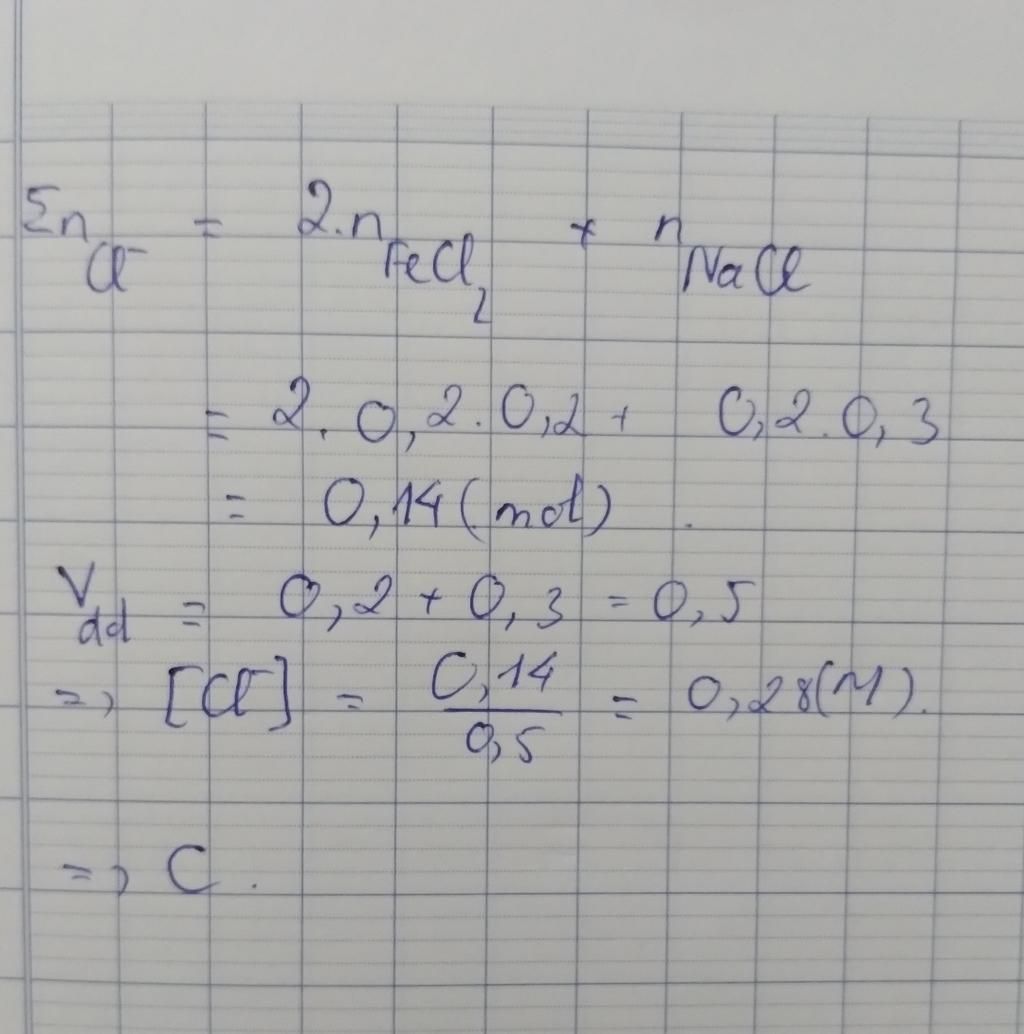 Σn Cl⁻ = 2.n FeCl₂ + n NaCl
= 2.0,2.0,2 + 0,2.0,3
= 0,14 (mol).
V dd = 0,2 + 0,3 = 0,5
=> [Cl⁻] = 0,14/0,5 = 0,28 (M).
=> C.